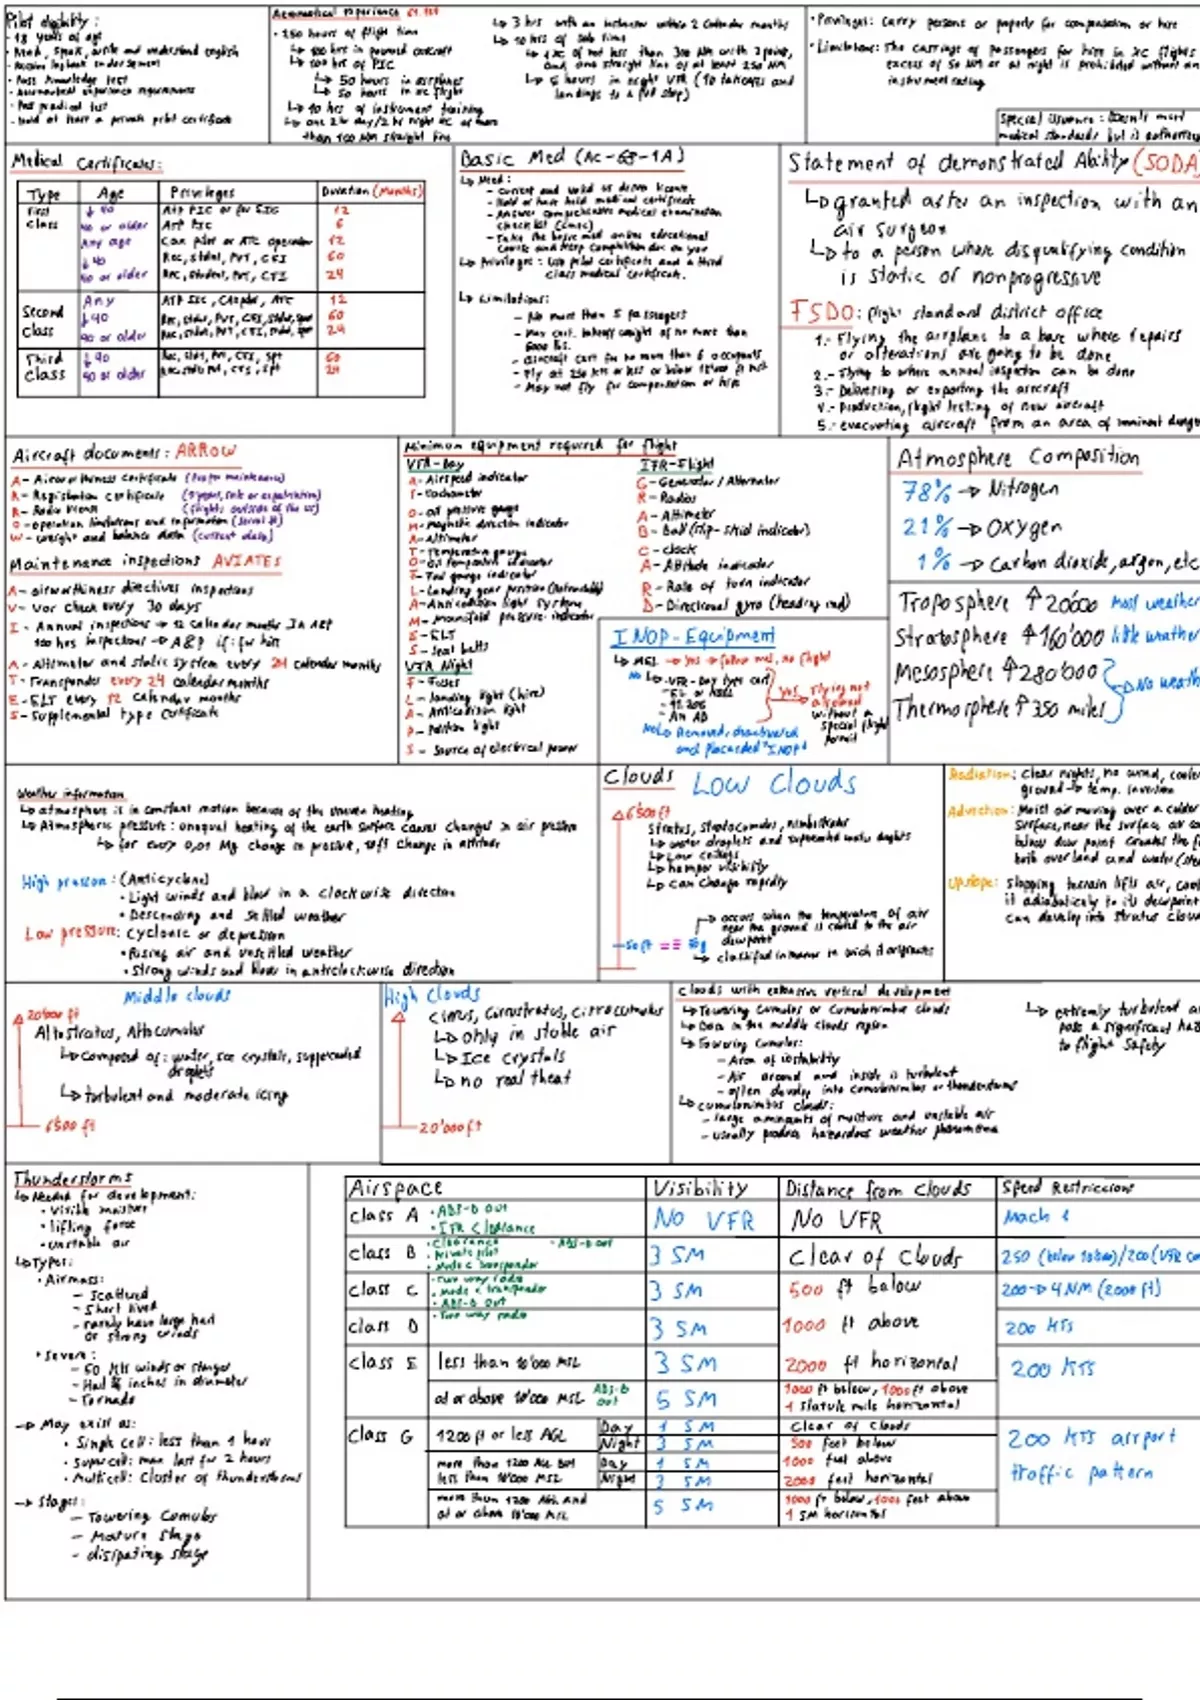 Pilot eligibility:
- 18 years of age
- Read, speak, write and understand english
- Receive logbook endorsement
- Pass knowledge test
- Aeronautical experience requirements
- Pass practical test
- Hold at least a private pilot certificate
Aeronautical experience 61.129
• 250 hours of flight time
↳ 100 hrs in powered aircraft
↳ 100 hrs of PIC
↳ 50 hours in airplanes
↳ 50 hours in xc flight
↳ 10 hrs of instrument training
↳ one 2 hr day/2 hr night XC of more
than 100 NM straight line
↳ 3 hrs with an instructor within 2 Calendar months
↳ 10 hrs of solo time
↳ 1 XC of not less than 300 NM with 3 points,
and one straight line of at least 250 NM
↳ 5 hours in night VFR (10 takeoffs and
landings to a full stop)
• Privileges: carry persons or property for compensation or hire
• Limitations: The carriage of passengers for hire in XC flights
excess of 50 NM or at night is prohibited without an
instrument rating
Special Issuance: Doesn't meet
medical standards but is authorized
Medical Certificates:
Type Age Privileges Duration (Months)
First class ↓ 40 ATP PIC or for SIC 12
40 or older ATP PIC 6
Any age Com pilot or ATC operator 12
↓40 Rec, Stdnt, PVT, CFI 60
40 or older Rec, Student, PVT, CFI 24
Second class Any ATP SIC, COM pilot, ATC 12
↓40 60
40 or older 24
Third class ↓40 60
40 or older 24
Basic Med (AC-68-1A)
↳ Need:
- Current and valid us driver licence
- Hold or have held medical certificate
- Answer comprehensive medical examination
checklist (CMEC)
- Take the basic med online educational
course and keep completion doc on you
↳ Privileges: Use pilot certificate and a third
class medical certificate.
↳ Limitations:
- No more than 5 passengers
- Max cert. takeoff weight of no more than
6000 lbs.
- aircraft cert for no more than 6 occupants
- Fly at 250 kts or less or below 18'000 ft MSL
- May not fly for compensation or hire
Statement of demonstrated Ability (SODA)
↳ granted after an inspection with an
air surgeon
↳ to a person whose disqualifying condition
is static or nonprogressive
FSDO: flight standard district office
1.- Flying the airplane to a base where repairs
or alterations are going to be done
2.- Flying to where annual inspection can be done
3.- Delivering or exporting the aircraft
4.- Production, flight testing of new aircraft
5.- evacuating aircraft from an area of imminent danger
Aircraft documents: ARROW
A - Airworthiness certificate (Proper maintenance)
R - Registration certificate
R - Radio license (flights outside of the US)
O - operation limitations and information (serial #)
W - weight and balance data (current data)
Maintenence inspections AVIATES
A - airworthiness directives inspections
V - Vor check every 30 days
I - Annual inspections → 12 Calendar months IA AEP
100 hrs inspections → A&P if: for hire
A - Altimeter and static system every 24 calendar months
T - Transponder every 24 calendar months
E - ELT every 12 Calendar months
S - Supplemental type Certificate
Minimum equipment required for flight
VFR-Day
A - Airspeed indicator
T - Tachometer
O - oil pressure gauge
M - Magnetic direction indicator
A - altimeter
T - Temperature gauge
O - Oil temperature indicator
F - Fuel gauge indicator
L - Landing gear position (Retractable)
A - Anticollision light system
M - Manifold pressure indicator
E - ELT
S - Seat belts
VFR Night
F - Fuses
L - landing light (hire)
A - Anticollision light
P - position light
S - Source of electrical power
IFR-Flight
G - Generator / Alternator
R - Radios
A - Altimeter
B - Ball (slip-skid indicator)
C - clock
A - Attitude indicator
R - Rate of turn indicator
D - Directional gyro (heading ind)
INOP-Equipment
↳ MEL → yes → follow mel, no flight
No ↳ - VFR-Day type cert
- EL or KOEL
- 91.205
- An AD
yes → Flying not
allowed
without a
special flight
permit
No ↳ Removed, deactivated
and placarded "INOP"
Atmosphere Composition
78% → Nitrogen
21% → Oxygen
1% → Carbon dioxide, argon, etc
Troposphere ↑ 20'000 Most weather
Stratosphere ↑ 160'000 little weather
Mesosphere ↑ 280'000
Thermosphere ↑ 350 miles
→ No weath
Weather information
↳ atmosphere is in constant motion because of the uneven heating
↳ Atmospheric pressure: unequal heating of the earth surface causes changes in air pressure
↳ for every 0,01 Hg change in pressure, 10ft change in altitude
High pressure: (Anticyclone)
• Light winds and blow in a clockwise direction
• Descending and settled weather
Low pressure: cyclonic or depression
• Rising air and unsettled weather
• Strong winds and blow in anticlockwise direction
Clouds Low Clouds
6'500 ft
Stratus, stratocumulus, nimbostratus
↳ water droplets and supercooled water droplets
↳ Low ceilings
↳ hamper visibility
↳ Can change rapidly
50 ft fog
→ occurs when the temperature of air
near the ground is cooled to the air
dewpoint
→ classified in manner in wich it originates
Radiation: clear nights, no wind, cooler
ground → temp. inversion
Advection: Moist air moving over a colder
surface, near the surface air co
below dew point creates the f
both over land and water
Upslope: Slopping terrain lifts air, cool
it adiabatically to its dewpoint
can develop into stratus cloud
Middle clouds
20'000 ft
Altostratus, Altocumulus
↳ Composed of: water, ice crystals, supercooled
droplets
↳ turbulent and moderate icing
6500 ft
High Clouds
Cirrus, Cirrostratus, Cirrocumulus
↳ only in stable air
↳ Ice crystals
↳ no real theat
20'000 ft
Clouds with extensive vertical development
↳ Towering cumulus or cumulonimbus clouds
↳ Base in the middle clouds region
↳ Towering cumulus:
- Area of instability
- Air around and inside is turbulent
- often develop into cumulonimbus or thunderstorms
↳ cumulonimbus clouds:
- large ammounts of moisture and unstable air
- usually produce hazardous weather phenomena
↳ extremly turbulent a
pose a significant haz
to flight safety
Thunderstorms
↳ Needed for development:
• visible moisture
• lifting force
• unstable air
↳ Types:
• Airmass:
- Scattered
- Short lived
- rarely have large hail
or strong winds
• Severe:
- 50 kts winds or stronger
- Hail ¾ inches in diameter
- Tornado
→ May exist as:
• Single cell: less than 1 hour
• Supercell: max last for 2 hours
• Multicell: cluster of thunderstorms
→ Stages:
- Towering Cumulus
- Mature stage
- dissipating stage
Airspace Visibility Distance from clouds Speed Restriccions
Class A • ADS-B out • IFR Clearance No VFR No VFR Mach 1
Class B • Clearance • ADS-B out • Private pilot • Mode C transponder 3 SM Clear of Clouds
Class C • Two way radio • Mode C transponder • ADS-B out 3 SM 500 ft below 200 → 4 NM (2000 ft)
Class D • Two way radio 3 SM 1000 ft above 200 KTS
Class E less than 10'000 MSL 3 SM 2000 ft horizontal 200 KTS
at or above 10'000 MSL ADS-B out 5 SM 1000 ft below, 1000 ft above
1 statute mile horizontal
Class G 1200 ft or less AGL Day 1 SM Clear of clouds 200 KTS airport
Night 3 SM 500 feet below traffic pattern
more than 1200 AGL but Day 1 SM 1000 feet above
less than 10'000 MSL Night 3 SM 2000 feet horizontal
more than 1200 AGL and 5 SM 1000 ft below, 1000 feet above
at or above 10'000 MSL 1 SM horizontal